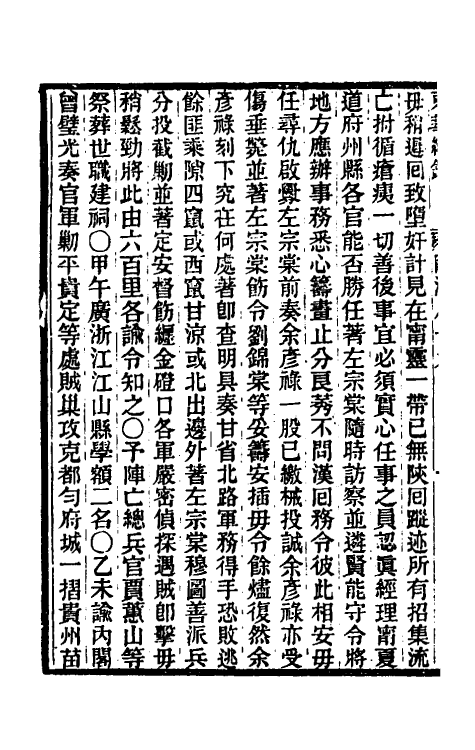 毋稍遲囘致墮奸計見在甯靈一帶已無陝囘蹤迹所有招集流
亡拊循瘡痍一切善後事宜必須實心任事之員認眞經理甯夏
道府州縣各官能否勝任著左宗棠隨時訪察並遴賢能守令將
地方應辦事務悉心籌畫止分良莠不問漢囘務令彼此相安毋
任尋仇啟釁左宗棠前奏余彥祿一股已繳械投誠余彥祿亦受
傷垂斃並著左宗棠飭令劉錦棠等妥籌安插毋令餘燼復然余
彥祿刻下究在何處著卽查明具奏甘省北路軍務得手恐敗逃
餘匪乘隙四竄或西竄甘涼或北出邊外著左宗棠穆圖善派兵
分投截勦並著定安督飭纏金磴口各軍嚴密偵探遇賊卽擊毋
稍鬆勁將此由六百里各諭令知之〇予陣亡總兵官賈蕙山等
祭葬世職建祠〇甲午廣浙江江山縣學額二名〇乙未諭內閣
曾璧光奏官軍勦平貴定等處賊巢攻克都勻府城一摺貴州苗